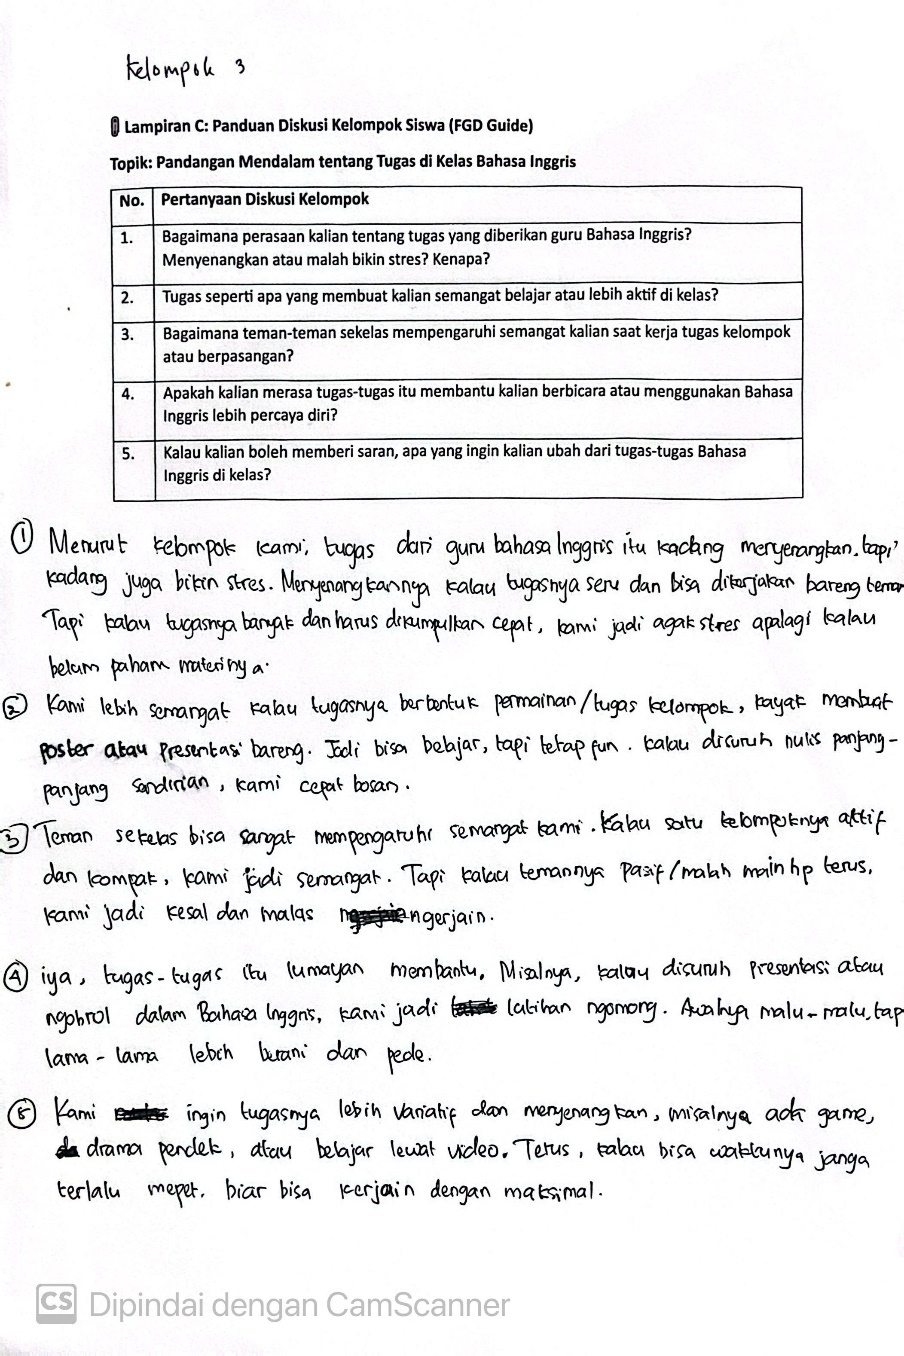 Kelompok 3
Lampiran C: Panduan Diskusi Kelompok Siswa (FGD Guide)
Topik: Pandangan Mendalam tentang Tugas di Kelas Bahasa Inggris
No. Pertanyaan Diskusi Kelompok
1. Bagaimana perasaan kalian tentang tugas yang diberikan guru Bahasa Inggris?
Menyenangkan atau malah bikin stres? Kenapa?
2. Tugas seperti apa yang membuat kalian semangat belajar atau lebih aktif di kelas?
3. Bagaimana teman-teman sekelas mempengaruhi semangat kalian saat kerja tugas kelompok
atau berpasangan?
4. Apakah kalian merasa tugas-tugas itu membantu kalian berbicara atau menggunakan Bahasa
Inggris lebih percaya diri?
5. Kalau kalian boleh memberi saran, apa yang ingin kalian ubah dari tugas-tugas Bahasa
Inggris di kelas?
① Menurut kelompok kami, tugas dari guru bahasa Inggris itu kadang menyenangkan, tapi
kadang juga bikin stres. Menyenangkannya kalau tugasnya seru dan bisa dikerjakan bareng teman
Tapi kalau tugasnya banyak dan harus dikumpulkan cepat, kami jadi agak stres apalagi kalau
belum paham materinya.
② Kami lebih semangat kalau tugasnya berbentuk permainan/tugas kelompok, kayak membuat
poster atau presentasi bareng. Jadi bisa belajar, tapi tetap fun. kalau disuruh nulis panjang-
panjang sendirian, kami cepat bosan.
③ Teman sekelas bisa sangat mempengaruhi semangat kami. Kalau satu kelompoknya aktif
dan kompak, kami jadi semangat. Tapi kalau temannya pasif/malah main hp terus,
kami jadi kesal dan malas ngerjain.
④ iya, tugas-tugas itu lumayan membantu. Misalnya, kalau disuruh presentasi atau
ngobrol dalam Bahasa Inggris, kami jadi latihan ngomong. Awalnya malu-malu, tap
lama-lama lebih berani dan pede.
⑤ Kami ingin tugasnya lebih variatif dan menyenangkan, misalnya ada game,
drama pendek, atau belajar lewat video. Terus, kalau bisa waktunya janga
terlalu mepet. biar bisa kerjain dengan maksimal.
CS Dipindai dengan CamScanner